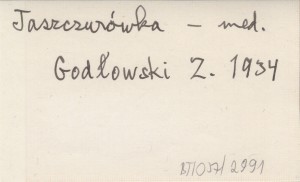 Jaszczurówka – med.
Godłowski Z. 1934
BT/057/2991